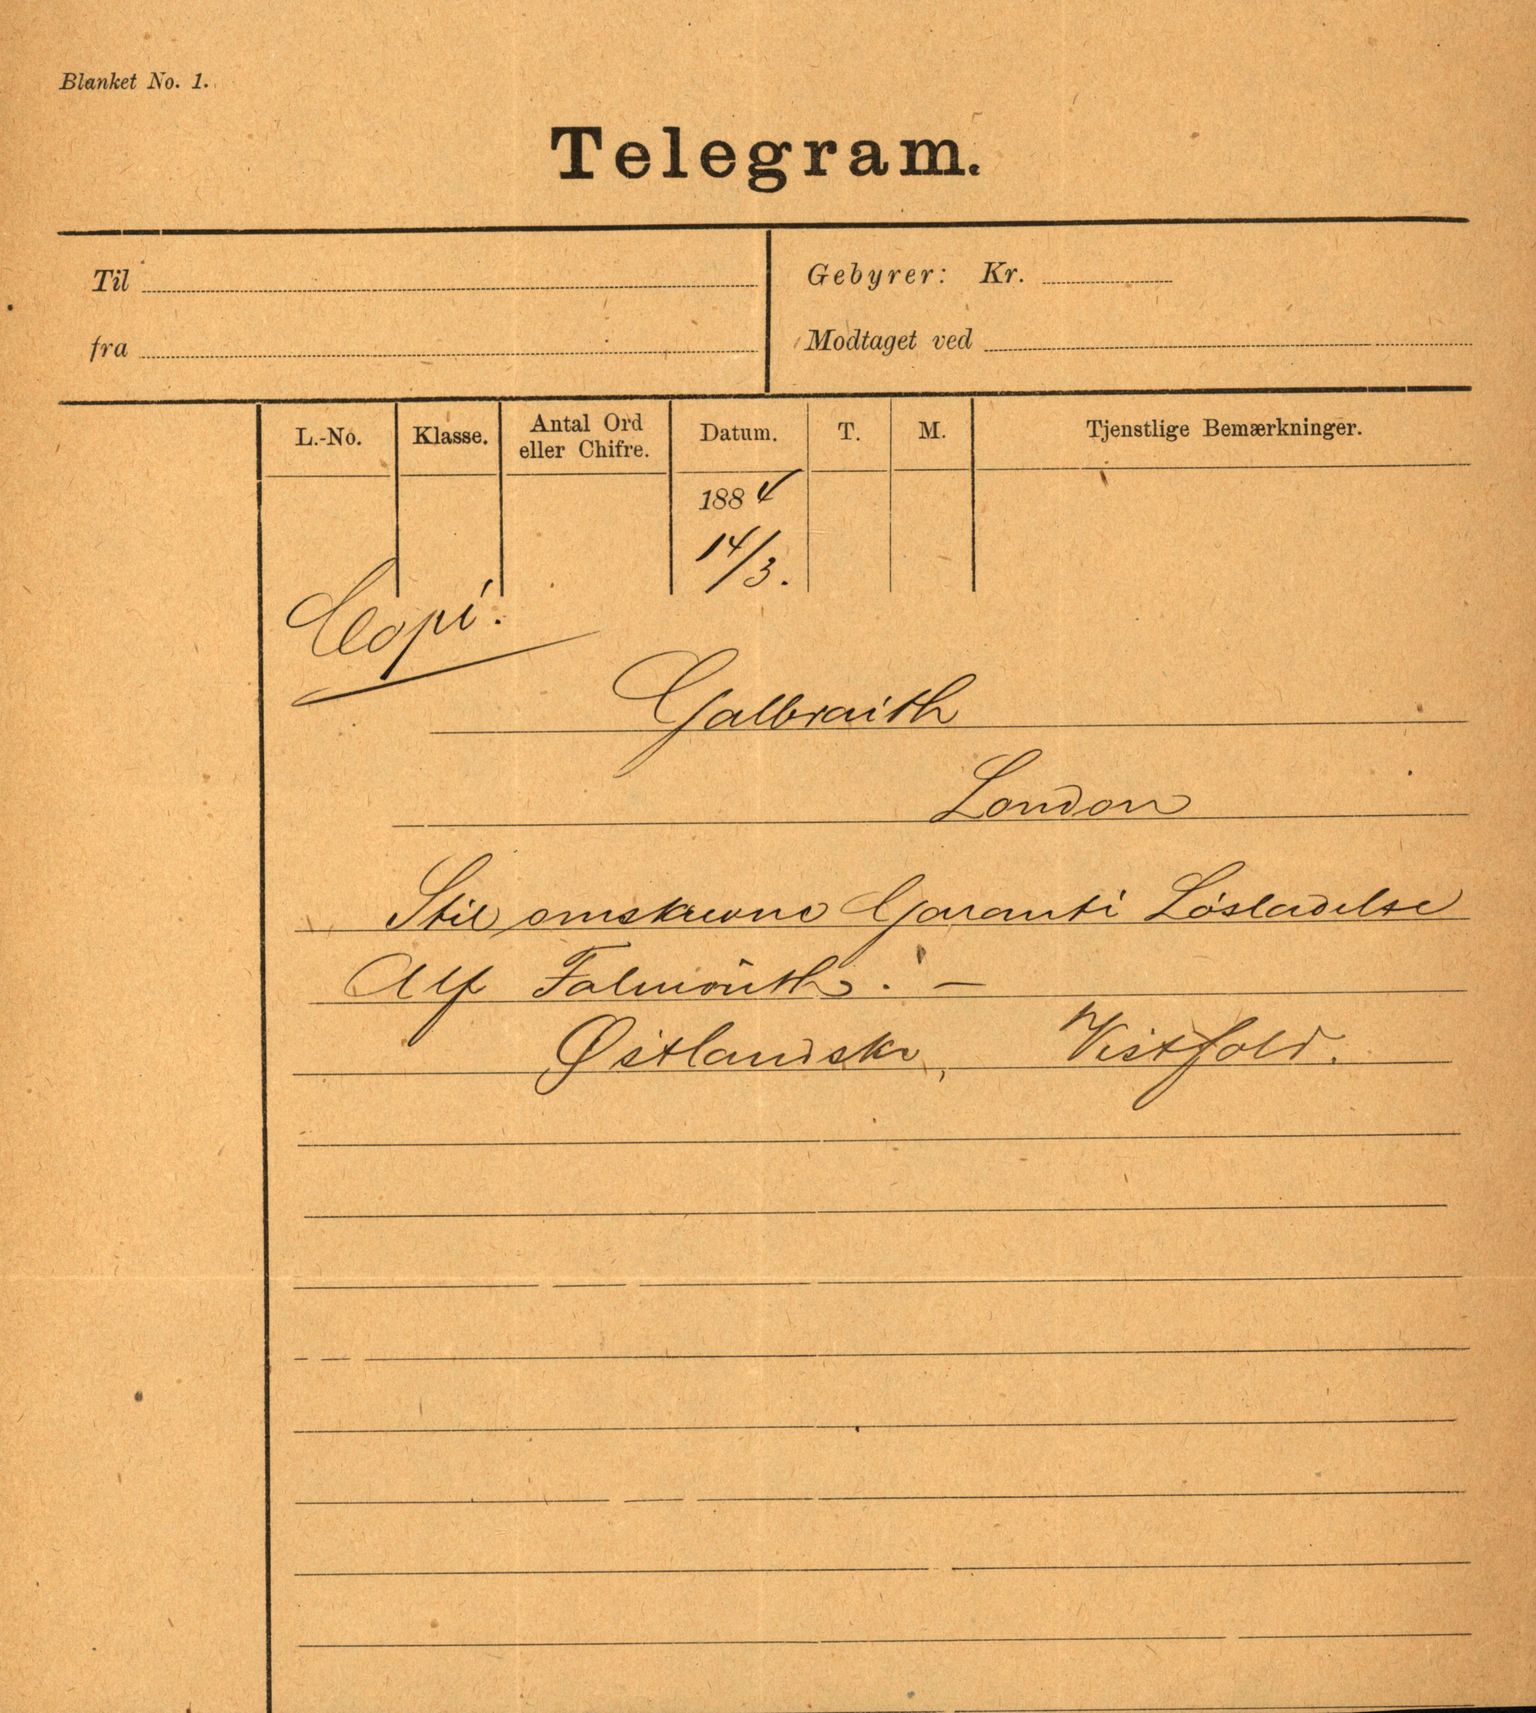 Blanket No. 1.
Telegram.
Til
fra
Gebyrer: Kr.
Modtaget ved
L.-No.
Klasse.
Antal Ord
eller Chifre.
Datum.
T.
M.
Tjenstlige Bemærkninger.
1884
14/3.
Copi.
Galbraith
London
Stil omskrevne Garanti Løsladelse
Alf Falmouth. —
Østlandske, Vestfold.